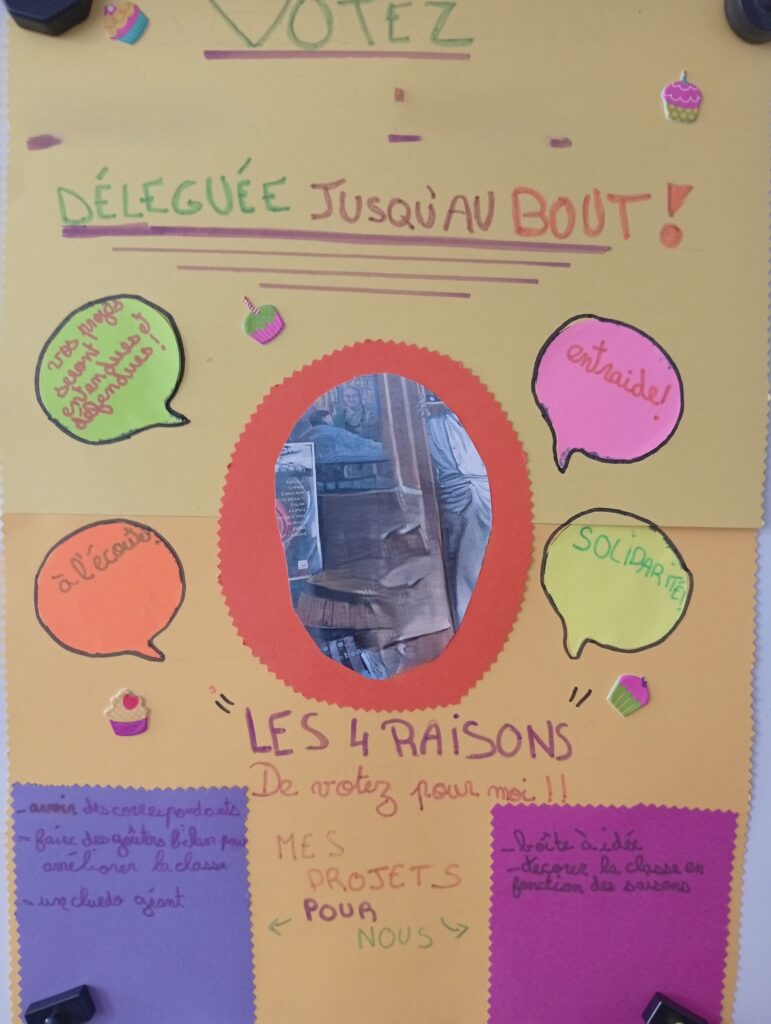 VOTEZ
DÉLEGUÉE JUSQU'AU BOUT!
vos projets
seront
entendues et
défendues!
entraide!
à l'écoute!
SOLIDARITÉ!
LES 4 RAISONS
De votez pour moi !!
- avoir des correspondants
- faire des goûters bilan pour
améliorer la classe
- un cluedo géant
MES
PROJETS
POUR
NOUS
- boîte à idée
- décorer la classe en
fonction des saisons